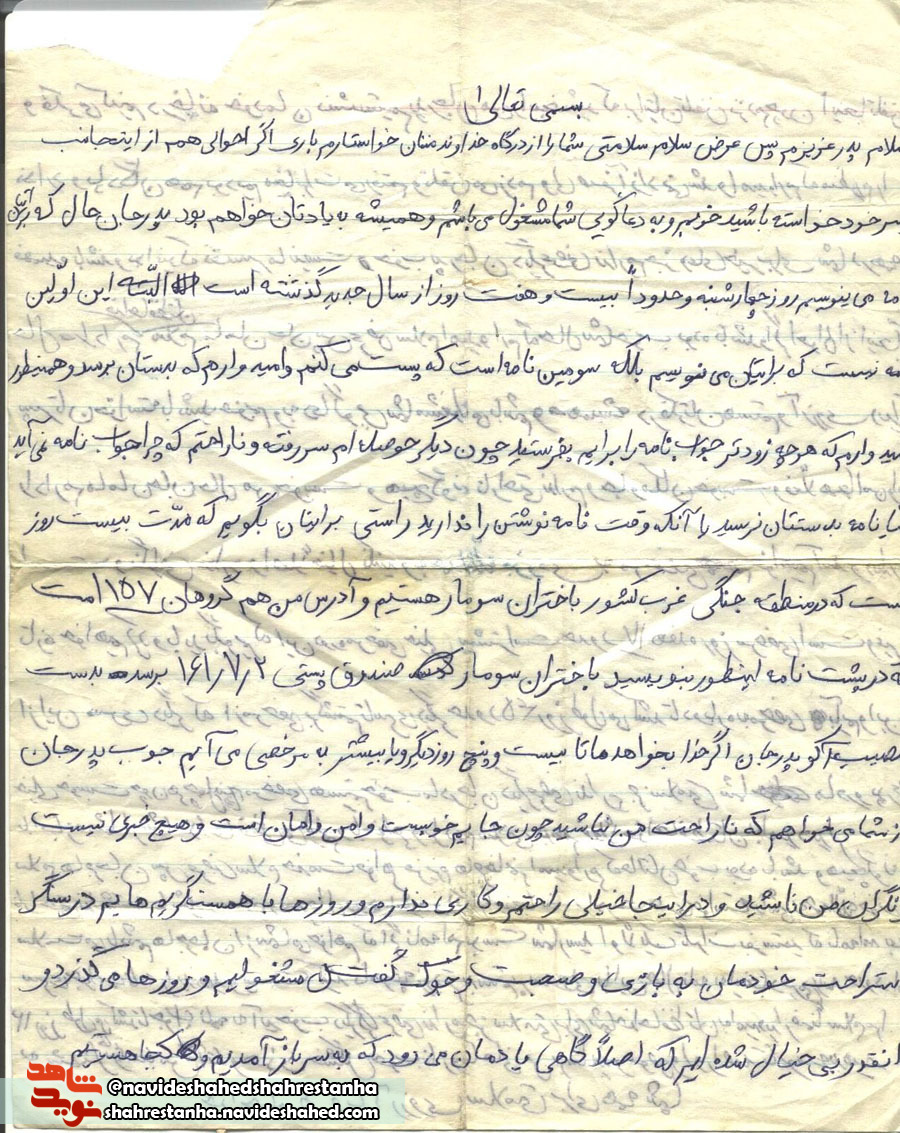 بسمی تعالی
سلام پدر عزیزم پس عرض سلام سلامتی شما را از درگاه خداوند منان خواستارم باری اگر احوالی همه از اینجانب
پسر خود خواسته باشید خوبم و به دعاگویی شما مشغول می باشم و همیشه به یادتان خواهم بود پدر جان حال که برایتان
نامه می نویسم روز چهارشنبه و حدوداً بیست و هفت روز از سال جدید گذشته است البته این اولین
نامه نیست که برایتان می نویسم بلکه سومین نامه است که پست می کنم و امیدوارم که بدستان برسد و همینطور
امید وارم که هر چه زودتر جواب نامه را برایم بفرستید چون دیگر حوصله ام سر رفته و ناراحتم که چرا جواب نامه نمی آید
یا نامه بدستتان نرسید یا آنکه وقت نامه نوشتن را ندارید راستی برایتان بگویم که مدّت بیست روز
است که در منطقه جنگی غرب کشور باختران سومار هستیم و آدرس من هم گروهان ۱۵۷ است
که در پشت نامه اینطور بنویسید باختران سومار صندوق پستی ۱۶۱/۷/۲ برسد بدست
پدر جان اگر خدا بخواهد ما تا بیست و پنج روز دیگر و یا بیشتر به مرخصی می آیم خوب پدر جان
از شما می خواهم که ناراحت من نباشید چون جایم خوبست و امن و امان است و هیچ خبری نیست
نگران من نباشید و در اینجا خیلی راحتم و کاری ندارم و روزها با همسنگریهایم در سنگر
استراحت خودمان به بازی و صحبت و جوک گفتن مشغولیم و روزها می گذرد و
آنقدر بی خیال شده ایم که اصلاً گاهی یادمان می رود که به سربازی آمدیم و کجا هستیم
شاهد
نوید
@navideshahedshahrestanha
shahrestanha.navideshahed.com